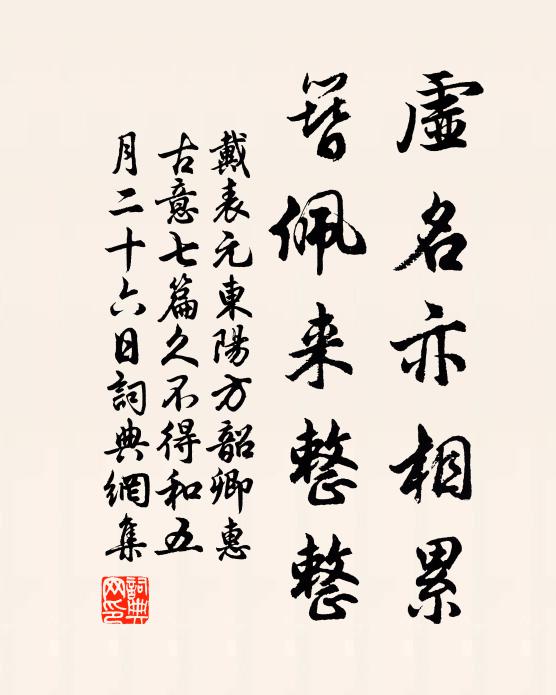 虛名亦相累
簪佩来整整
戴表元東陽方韶卿惠
古意七篇久不得和五
月二十六日詞典網集
詞典
网印